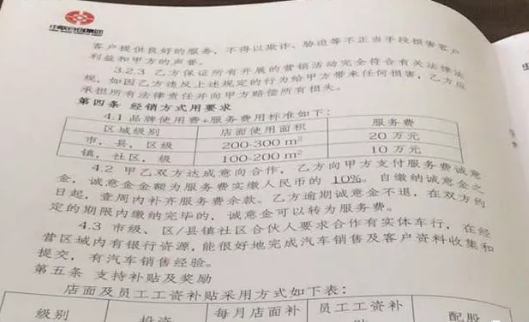 客户提供良好的服务，不得以欺诈、胁迫等不正当手段损害客户
利益和甲方的声誉。
3.2.3 乙方保证所有开展的营销活动完全符合有关法律法
规，如因乙方违反上述规定的行为给甲方带来任何损害，乙方应
承担所有法律责任并向甲方赔偿所有损失。
第四条 经销方式用要求
4.1 品牌使用费+服务费用标准如下：
区域级别 店面使用面积 服务费
市，县，区级 200-300 m² 20 万元
镇，社区，级 100-200 m² 10 万元
4.2 甲乙双方达成意向合作，乙方向甲方支付服务费诚意
金，诚意金金额为服务费实缴人民币的 10%。自缴纳诚意金之
日起，壹周内补齐服务费余款。乙方逾期诚意金不退，在双方约
定的期限内缴纳完毕的，诚意金可以转为服务费。
4.3 市级、区/县镇社区合伙人要求合作有实体车行，在经
营区域内有银行资源，能很好地完成汽车销售及客户资料收集和
提交，有汽车销售经验。
第五条 支持补贴及奖励
店面及员工工资补贴采用方式如下表：
级别 每月店面补 员工工资补 配股